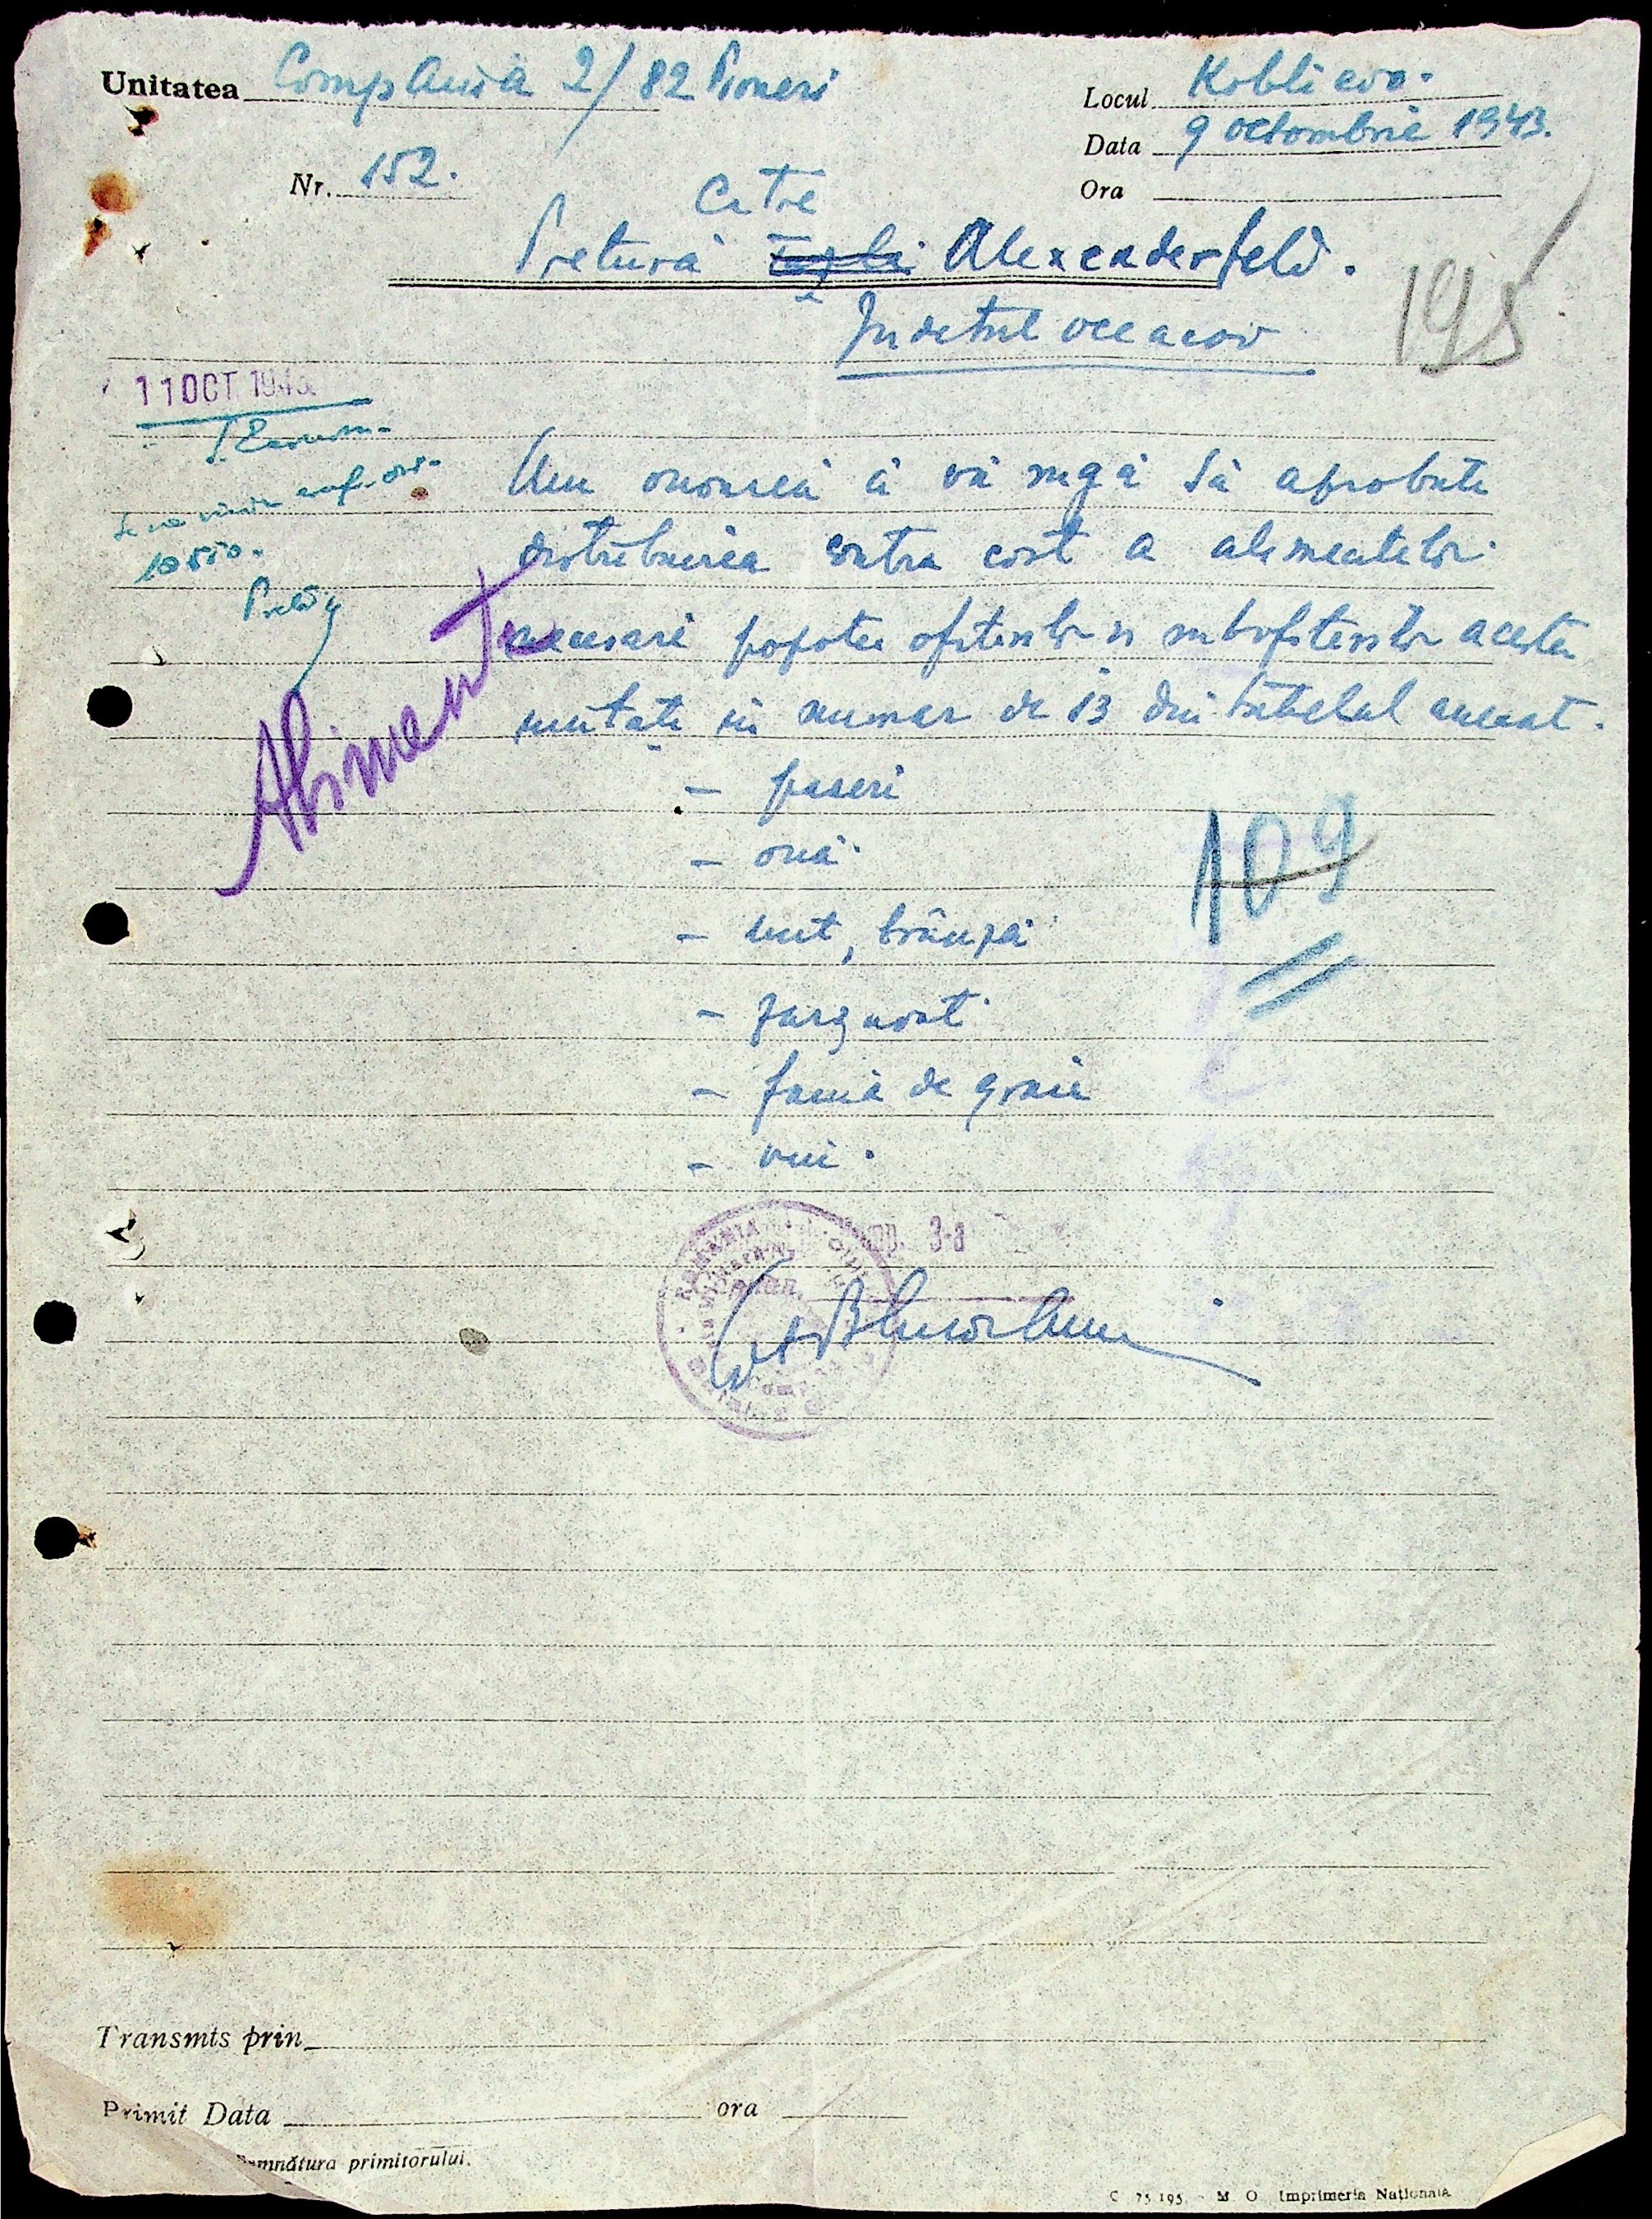 Unitatea Compania 2/82 Pioneri
Locul Kobliewo.
Data 9 octombrie 1943.
Nr. 152.
Ora
Catre
Pretura Alexanderfeld.
Judetul Oceacov
195
11 OCT 1943
Am onoarea a vă ruga să aprobati
distribuirea contra cost a alimentelor
necesare popotei ofiterilor si subofiterilor acestei
unitati in numar de 13 din tabelul anexat.
Alimente
10550.
Pretor
- paseri
- ouă
- unt, brânză
- zarzavat
- faină de grâu
- vin.
109
ROMANIA
Transmis prin
Primit Data ora
Semnătura primitorului.
C 75.195. - M. O. Imprimeria Naţională